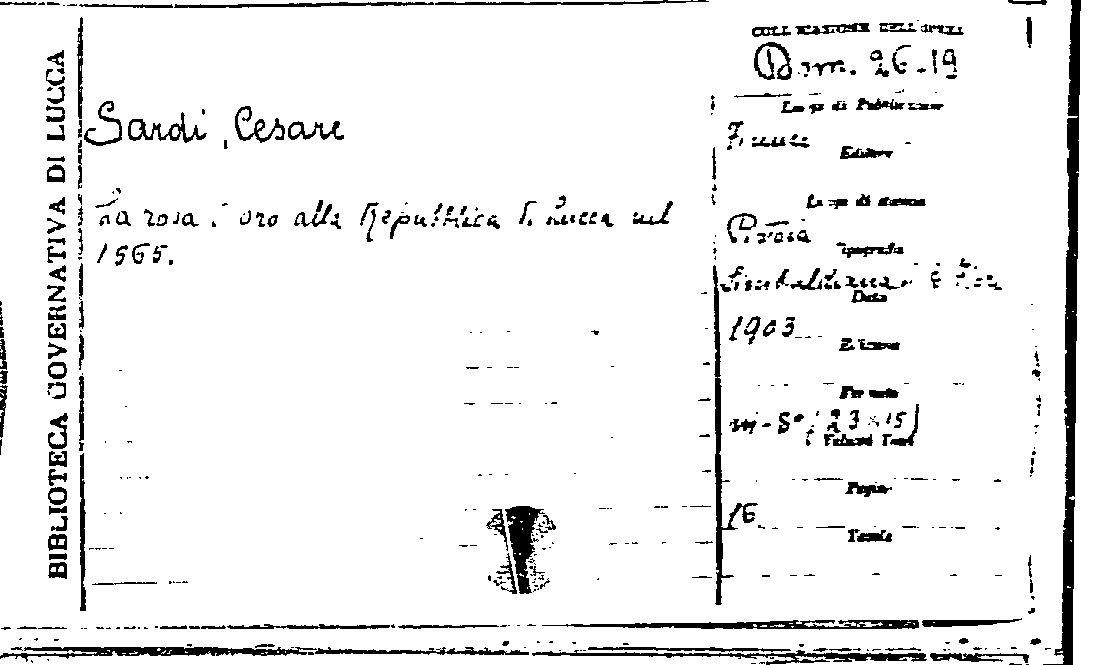 BIBLIOTECA GOVERNATIVA DI LUCCA
Sardi, Cesare
La rosa d'oro alla Repubblica di Lucca nel
1565.
COLLOCAZIONE DELL'OPERA
Dom. 26-19
Luogo di Pubblicazione
Firenze
Editore
Luogo di stampa
Pistoia
Tipografia
Data
1903
Edizione
Formato
in-8° (23x15)
Volumi Tomi
Pagine
16
Tavole